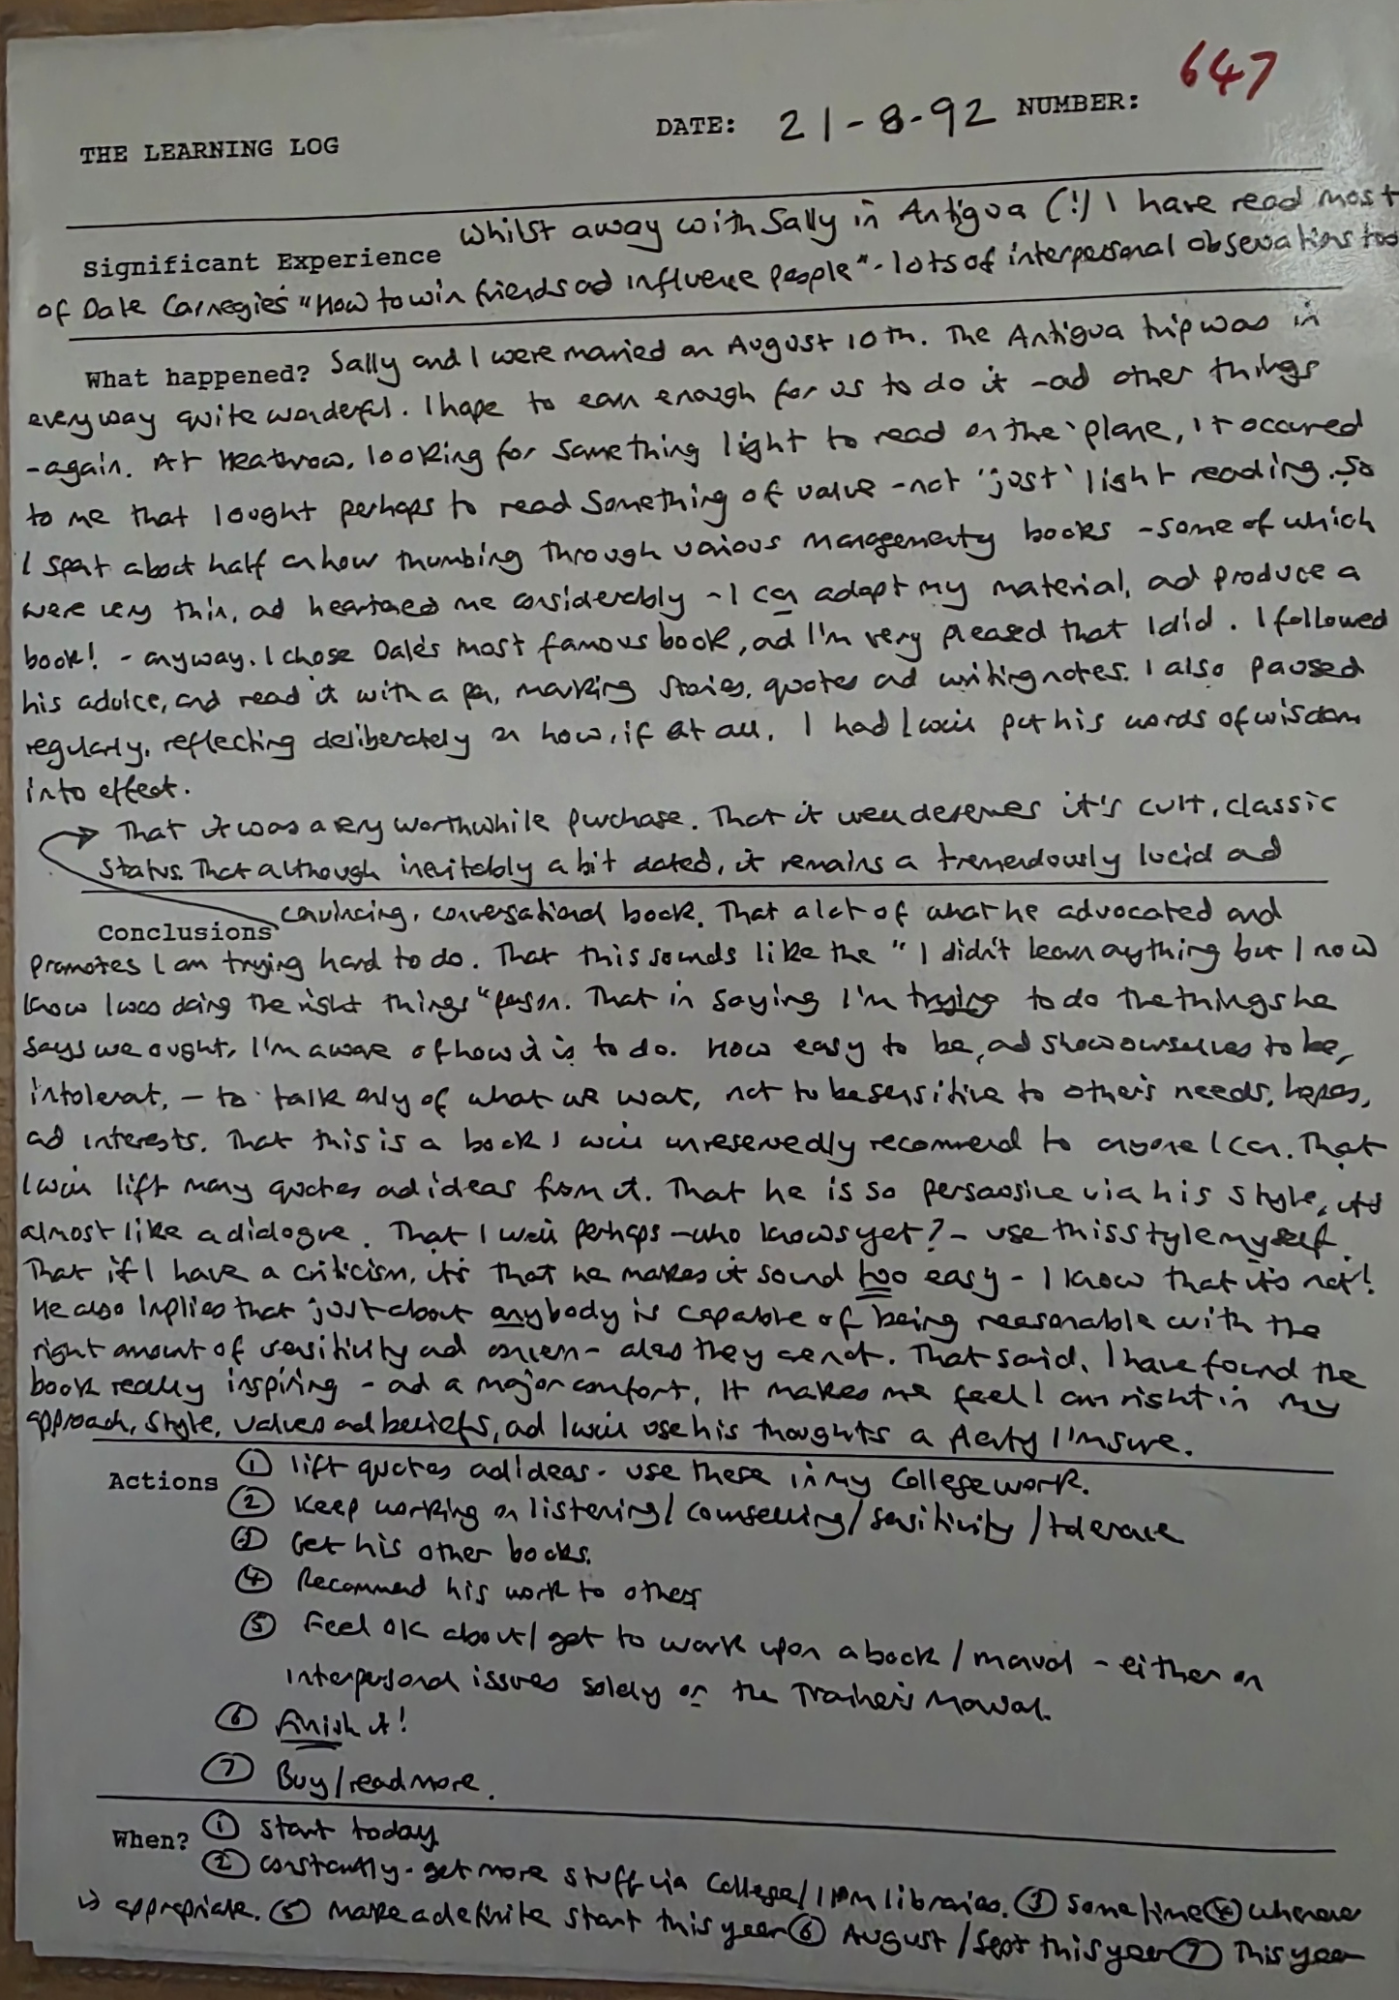 647
THE LEARNING LOG DATE: 21-8-92 NUMBER:
Significant Experience whilst away with Sally in Antigua (!) I have read most
of Dale Carnegies "How to win friends ad influence people" - lots of interpersonal observations too
What happened? Sally and I were married on August 10th. The Antigua trip was in
every way quite wonderful. I hope to earn enough for us to do it - ad other things
- again. At Heathrow, looking for something light to read on the 'plane, it occured
to me that I ought perhaps to read something of value - not 'just' light reading. So
I spent about half an hour thumbing through various managementy books - some of which
were very thin, ad heartened me considerably - I can adapt my material, ad produce a
book! - anyway. I chose Dale's most famous book, ad I'm very pleased that I did. I followed
his advice, and read it with a pen, marking stories, quotes ad writing notes. I also paused
regularly, reflecting deliberately on how, if at all, I had / will put his words of wisdom
into effect.
That it was a very worthwhile purchase. That it well deserves it's cult, classic
status. That although inevitably a bit dated, it remains a tremendously lucid ad
Conclusions convincing, conversational book. That a lot of what he advocated and
promotes I am trying hard to do. That this sounds like the "I didn't learn anything but I now
know I was doing the right things" person. That in saying I'm trying to do the things he
says we ought, I'm aware of how it is to do. How easy to be, ad show ourselves to be,
intolerant, - to talk only of what we want, not to be sensitive to other's needs, hopes,
ad interests. That this is a book I will unreservedly recommend to anyone I can. That
I will lift many quotes ad ideas from it. That he is so persuasive via his style, it's
almost like a dialogue. That I will perhaps - who knows yet? - use this style myself.
That if I have a criticism, it's that he makes it sound too easy - I know that it's not!
He also implies that just about anybody is capable of being reasonable with the
right amount of sensitivity ad concern - alas they are not. That said, I have found the
book really inspiring - ad a major comfort, It makes me feel I am right in my
approach, style, values ad beliefs, ad I will use his thoughts a plenty I'm sure.
Actions ① lift quotes ad ideas - use these in my College work.
② Keep working on listening/counselling/sensitivity/tolerance
③ Get his other books.
④ Recommend his work to others
⑤ Feel OK about/get to work upon a book/manual - either on
interpersonal issues solely or the Trainer's Manual.
⑥ Finish it!
⑦ Buy/read more.
When? ① start today
② constantly - get more stuff via College/IPM libraries. ③ Sometime ④ wherever
is appropriate. ⑤ Make a definite start this year ⑥ August/Sept this year ⑦ This year